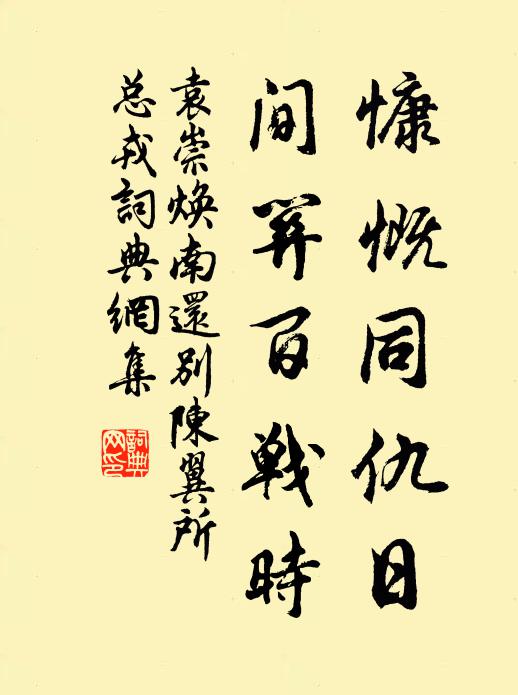 慷慨同仇日
间关百戰時
袁崇焕南還别陳翼所
总戎詞典網集
詞典网印